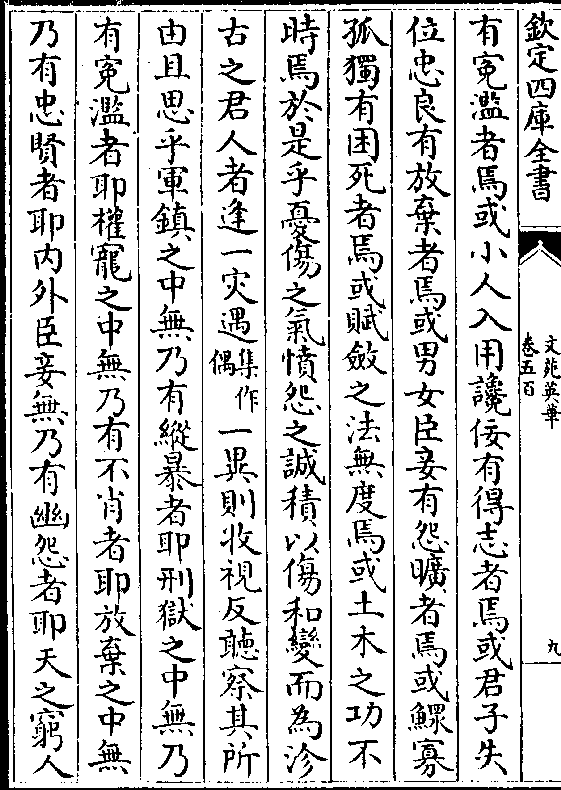 欽定四庫全書
文苑英華
卷五百
九
有冤濫者焉或小人入用讒佞有得志者焉或君子失
位忠良有放棄者焉或男女臣妾有怨曠者焉或鰥寡
孤獨有困死者焉或賦斂之法無度焉或土木之功不
時焉於是乎憂傷之氣憤怨之誠積以傷和變而為沴
古之君人者逢一灾遇集作偶一異則收視反聽察其所
由且思乎軍鎮之中無乃有縱暴者耶刑獄之中無乃
有冤濫者耶權寵之中無乃有不肖者耶放棄之中無
乃有忠賢者耶内外臣妾無乃有幽怨者耶天之窮人